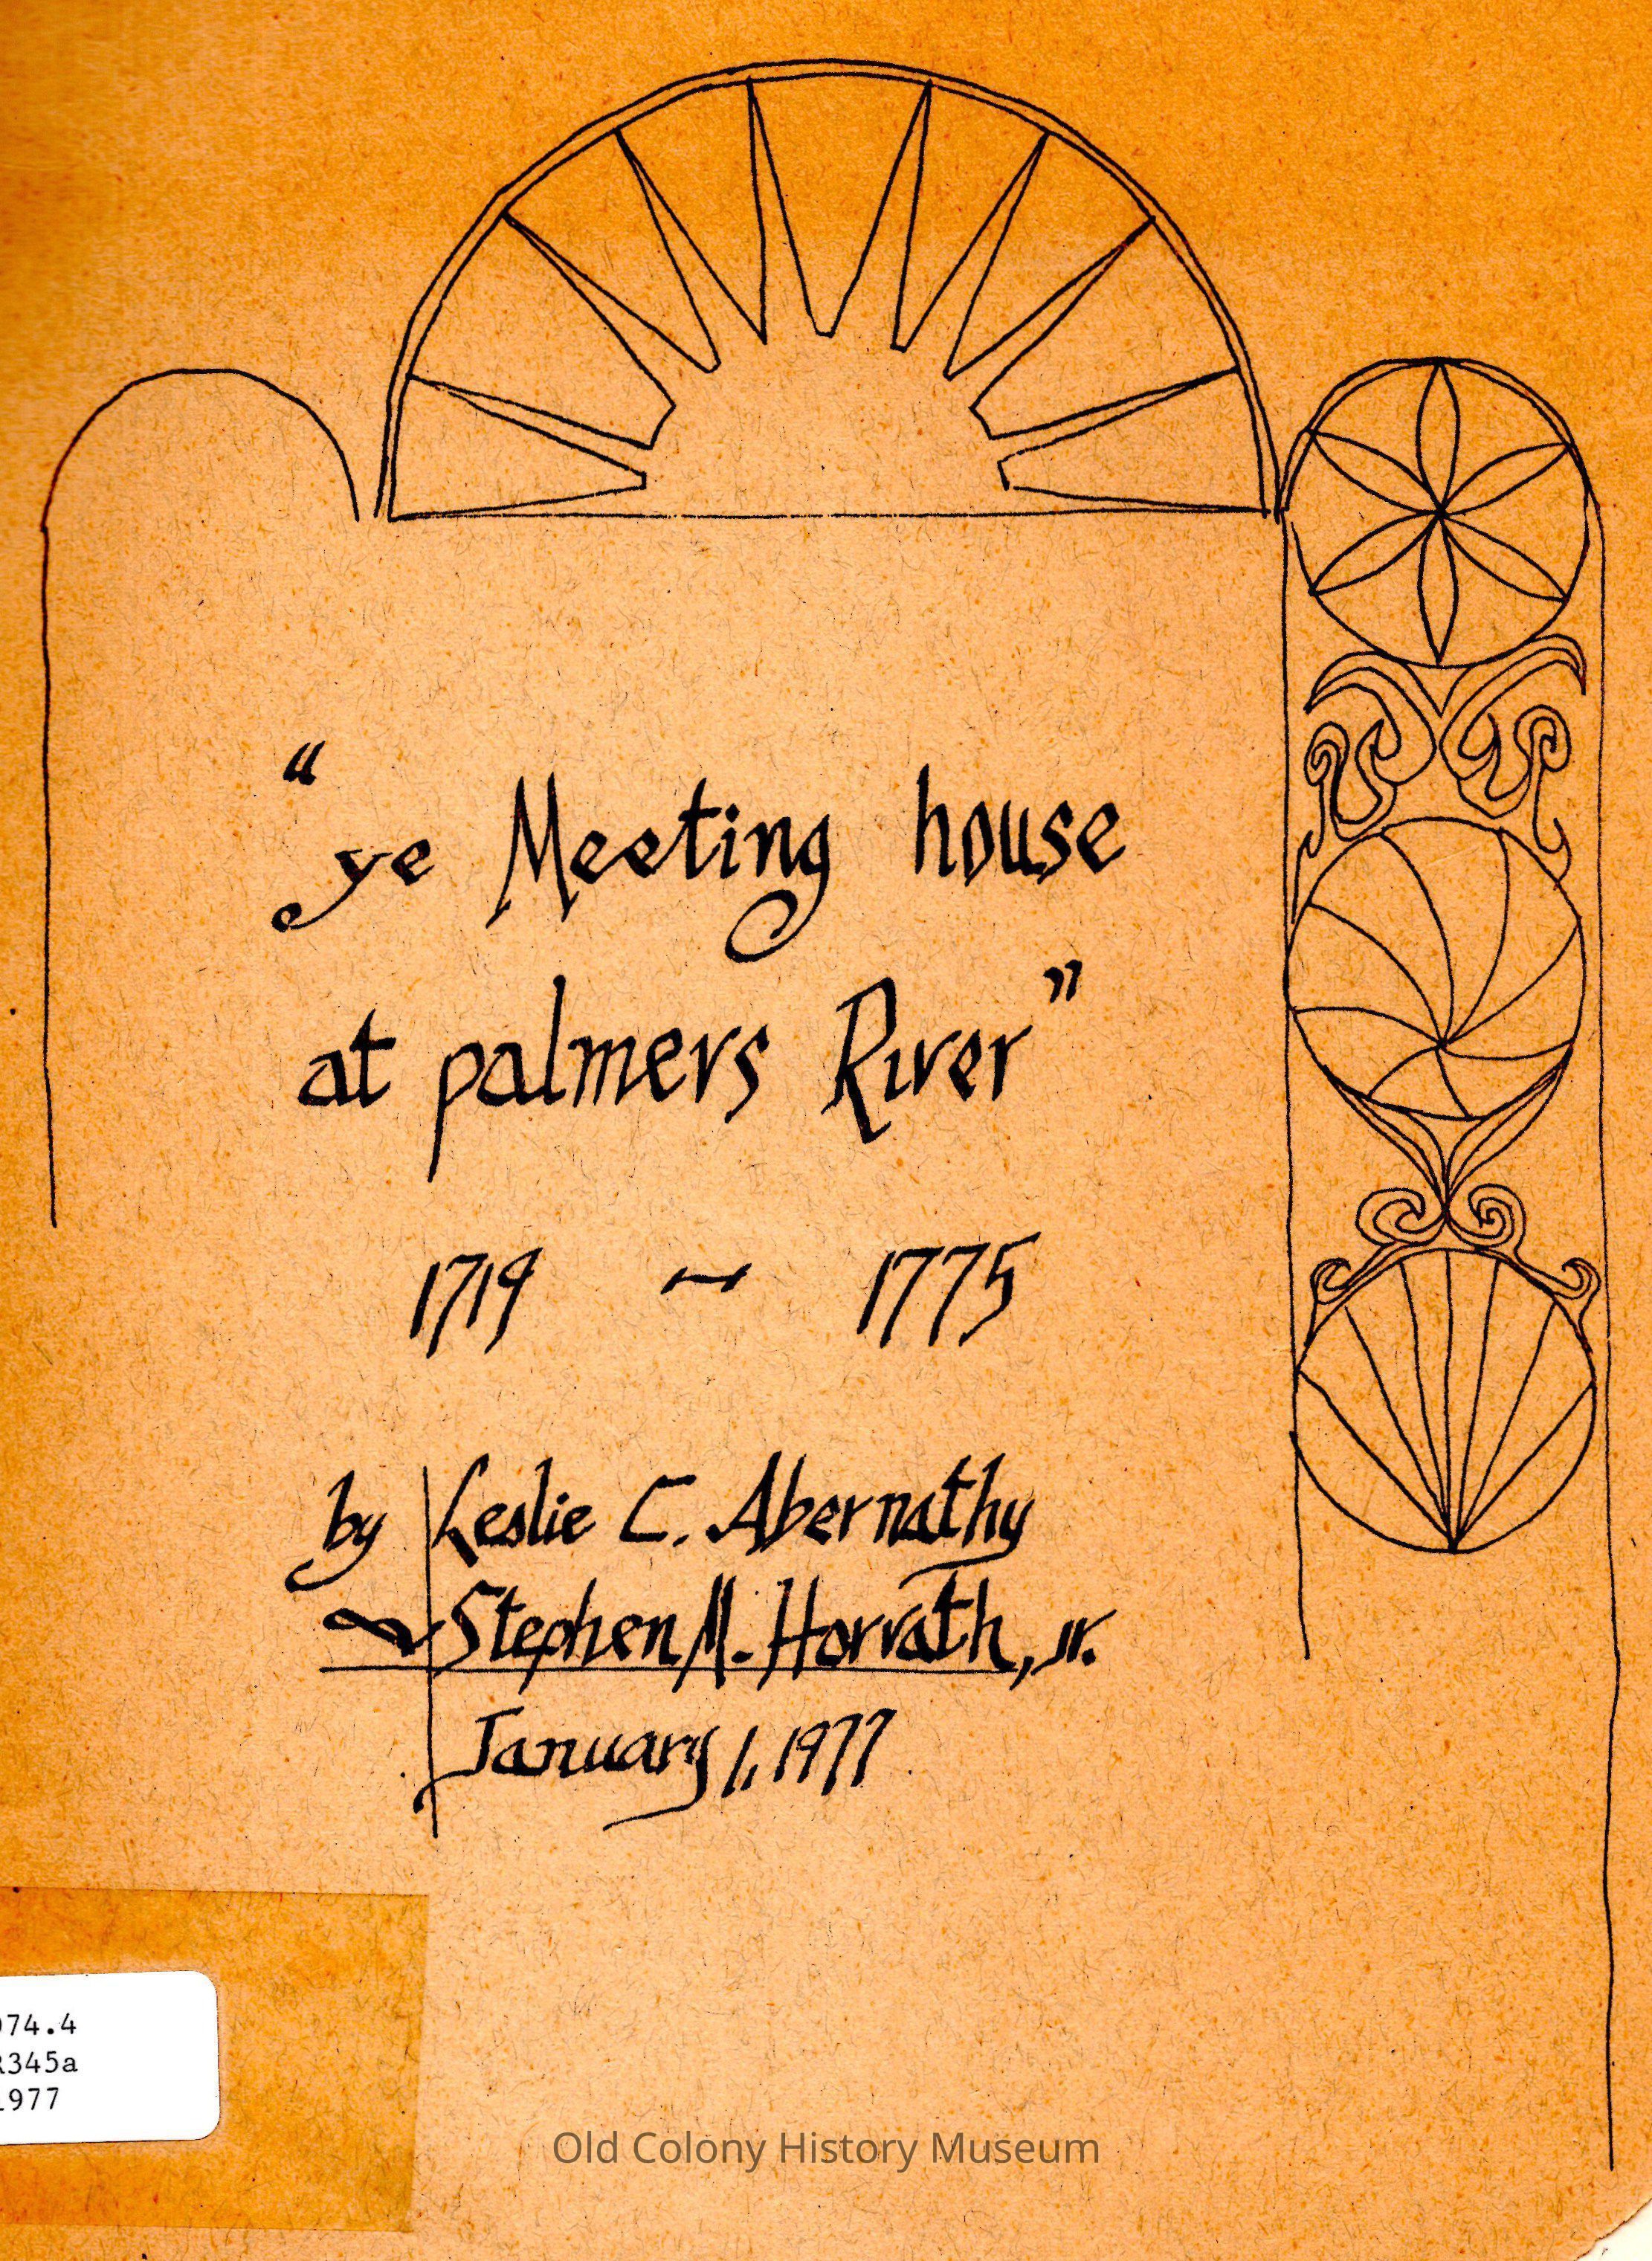 “
ye Meeting house
at palmers River”
1719 ~ 1775
by Leslie C. Abernathy
Stephen M. Horvath, Jr.
January 1, 1977
974.4
R345a
1977
Old Colony History Museum